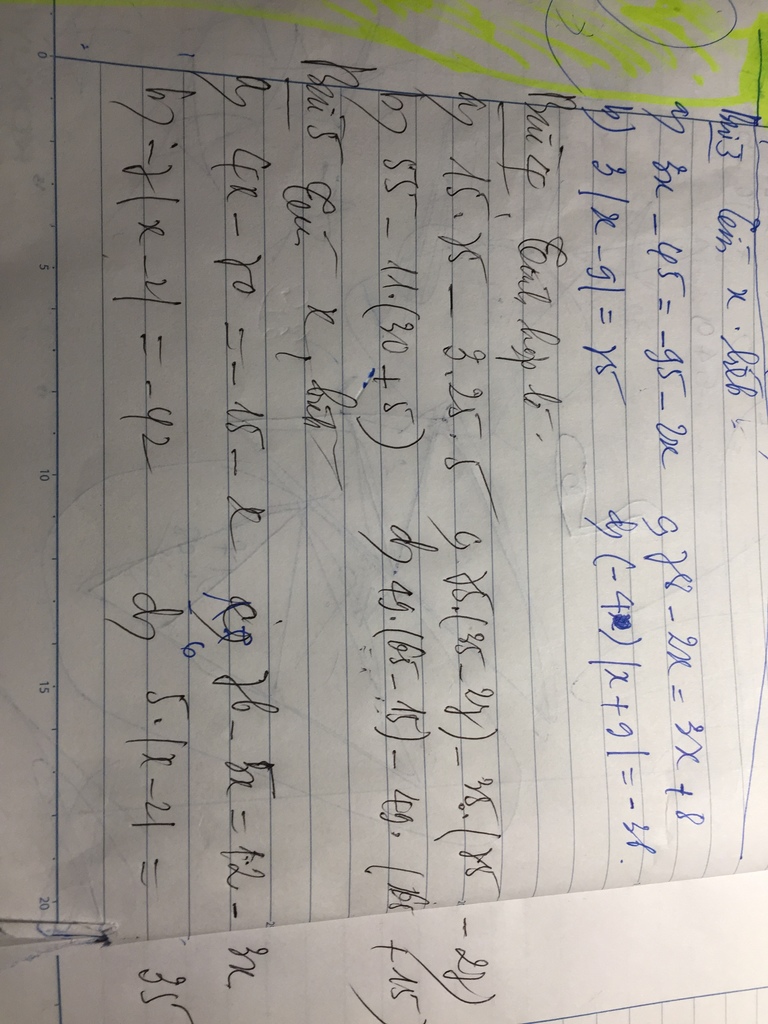 Bài 3 Tìm x. biết:
a) 3x - 45 = -95 - 2x c) 78 - 2x = 3x + 8
b) 3 |x - 9| = 75 d) (-4) |x + 9| = -36.
Bài 4 Tính hợp lí.
a) 15.75 - 3.25.5 c) 75.(35 - 27) - 35.(75 - 27)
b) 55 - 11.(30 + 5) d) 49.(65 - 15) - 49.(65 + 15)
Bài 5 Tìm x, biết
a) 4x - 70 = -15 - x c) 76 - 3x = 12 - 3x
b) -7 |x - 2| = -42 d) 5.|x - 2| = 35